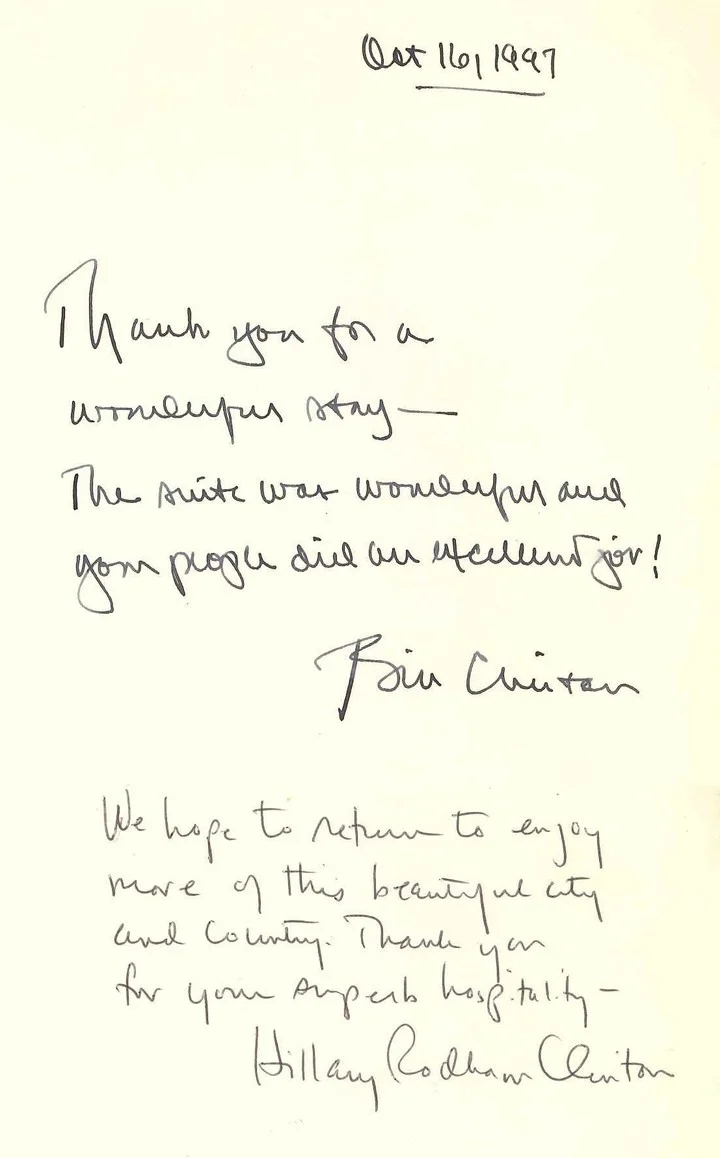 Oct 16, 1997
Thank you for a
wonderful stay—
The suite was wonderful and
your people did an excellent job!
Bill Clinton
We hope to return to enjoy
more of this beautiful city
and country. Thank you
for your superb hospitality—
Hillary Rodham Clinton